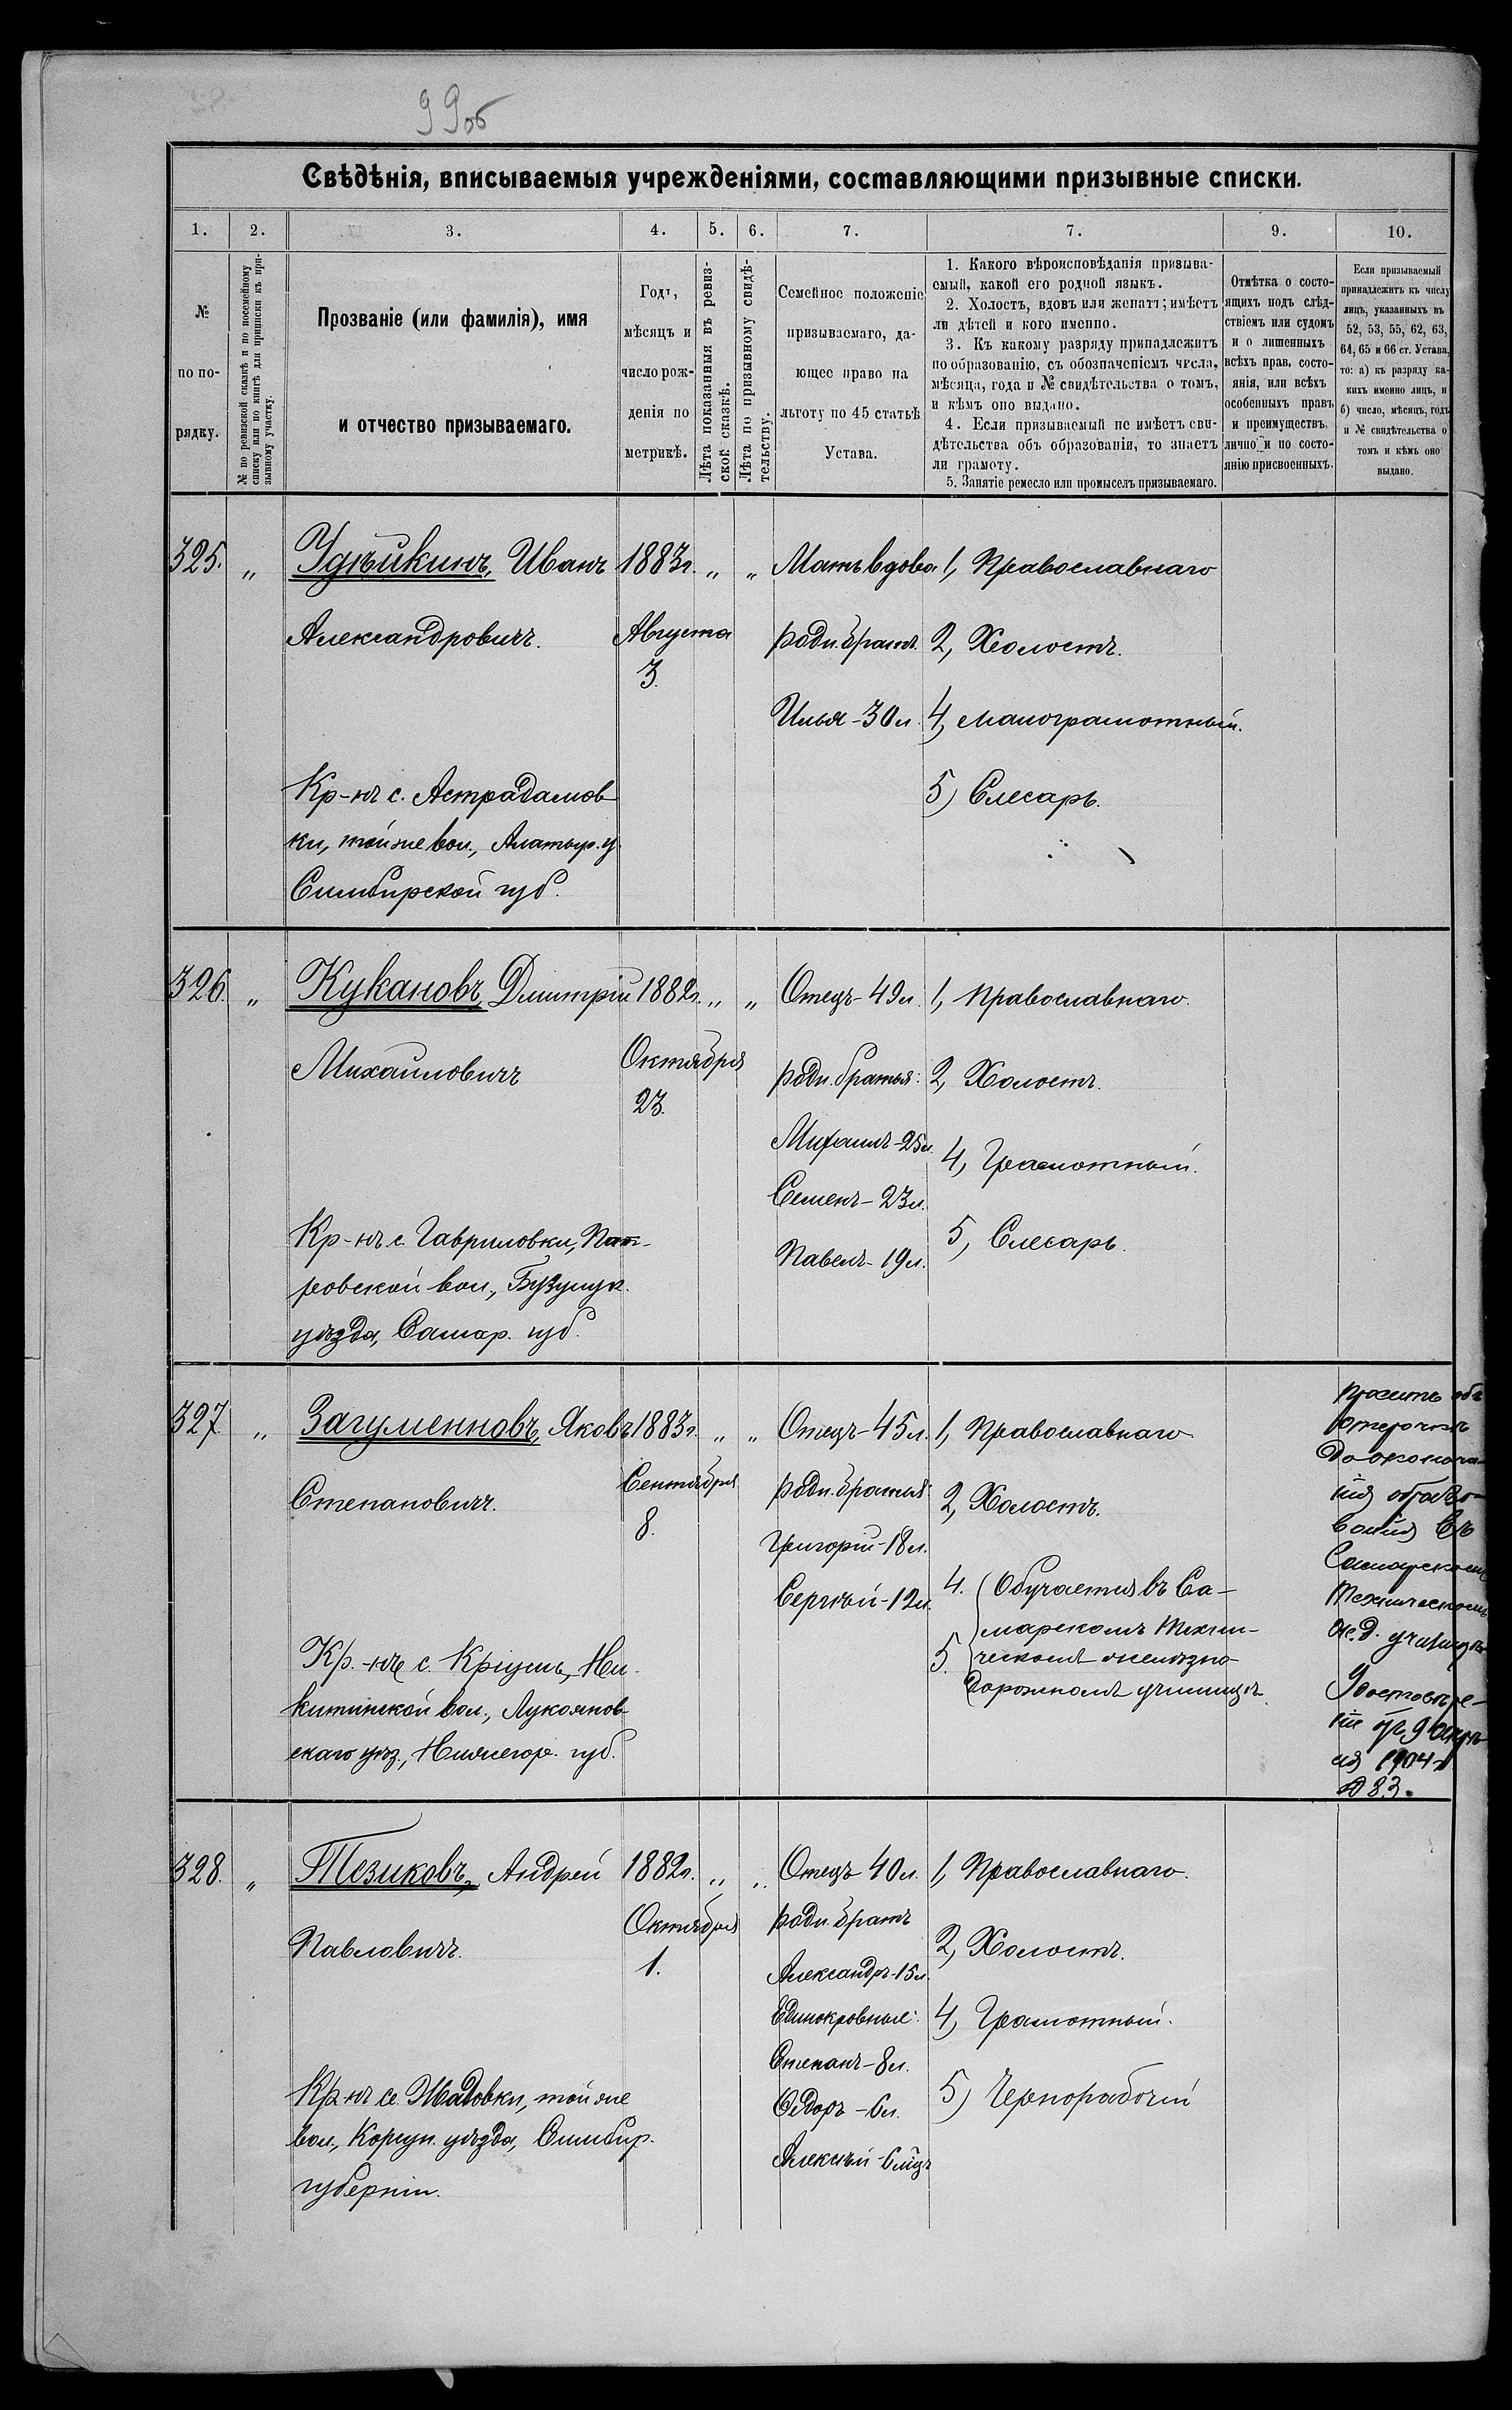 99об
Свѣдѣнія, вписываемыя учрежденіями, составляющими призывные списки.
1. 2. 3. 4. 5. 6. 7. 7. 9. 10.
№
по по-
рядку.
№ по ревизской сказкѣ и по посемейному
списку или по книгѣ для приписки къ при-
зывному участку.
Прозваніе (или фамилія), имя
и отчество призываемаго.
Годъ,
мѣсяцъ и
число рож-
денія по
метрикѣ.
Лѣта показанныя въ ревиз-
ской сказкѣ.
Лѣта по призывному свидѣ-
тельству.
Семейное положеніе
призываемаго, да-
ющее право на
льготу по 45 статьѣ
Устава.
1. Какого вѣроисповѣданія призыва-
емый, какой его родной языкъ.
2. Холостъ, вдовъ или женатъ; имѣетъ
ли дѣтей и кого именно.
3. Къ какому разряду принадлежитъ
по образованію, съ обозначеніемъ числа,
мѣсяца, года и № свидѣтельства о томъ,
и кѣмъ оно выдано.
4. Если призываемый не имѣетъ сви-
дѣтельства объ образованіи, то знаетъ
ли грамоту.
5. Занятіе ремесло или промыселъ призываемаго.
Отмѣтка о состо-
ящихъ подъ слѣд-
ствіемъ или судомъ
и о лишенныхъ
всѣхъ прав. состо-
янія, или всѣхъ
особенныхъ правъ
и преимуществъ,
лично и по состо-
янію присвоенныхъ.
Если призываемый
принадлежитъ къ числу
лицъ, указанныхъ въ
52, 53, 55, 62, 63,
64, 65 и 66 ст. Устава,
то: а) къ разряду ка-
кихъ именно лицъ, и
б) число, мѣсяцъ, годъ
и № свидѣтельства о
томъ и кѣмъ оно
выдано.
325. „ Удѣйкинъ, Иванъ
Александровичъ.
Кр-нъ с. Астрадамов
ки, той же вол., Алатыр. у.
Симбирской губ.
1883г. „ „
Августа
3.
Мать вдова
родн. братъ
Илья - 30 л.
1, Православнаго
2, Холостъ.
4, малограмотный.
5) Слесарь.
326. „ Кукановъ, Дмитрій
Михайловичъ
Кр-нъ с. Гавриловки,
ровской вол., Бузулук.
уѣзда, Самар. губ.
1882г. „ „
Октября
23.
Отецъ - 49 л.
родн. братья:
Михаилъ - 25 л.
Семенъ - 23 л.
Павелъ - 19 л.
1, Православнаго.
2, Холостъ.
4, Грамотный.
5, Слесарь.
327. „ Загуменновъ, Яковъ
Степановичъ.
Кр.-нъ с. Кріуши, Ни-
китинской вол., Лукоянов-
скаго уѣз., Нижегор. губ.
1883г. „ „
Сентября
8.
Отецъ - 45 л.
родн. братья
Григорій - 18 л.
Сергѣй - 12 л.
1, Православнаго
2, Холостъ.
4. Обучается въ Са-
марскомъ Техни-
5. ческомъ желѣзно-
дорожномъ училищѣ.
Проситъ объ
отсрочкѣ
до оконча-
нія образо-
ванія въ
Самарскомъ
Техническомъ
ж.д. училищѣ
Удостовѣре-
ніе отъ 9 апрѣ-
ля 1904 г.
№ 83.
328. „ Тезиковъ, Андрей
Павловичъ.
Кр-нъ с. Жадовки, той же
вол., Корсун. уѣзда, Симбир.
губерніи.
1882г. „ „
Октября
1.
Отецъ 40 л.
родн. братъ
Александръ - 15 л.
Единокровные:
Степанъ - 8 л.
Ѳедоръ - 6 л.
Алексѣй - 6 мѣц.
1, Православнаго.
2, Холостъ.
4, Грамотный.
5) Чернорабочій